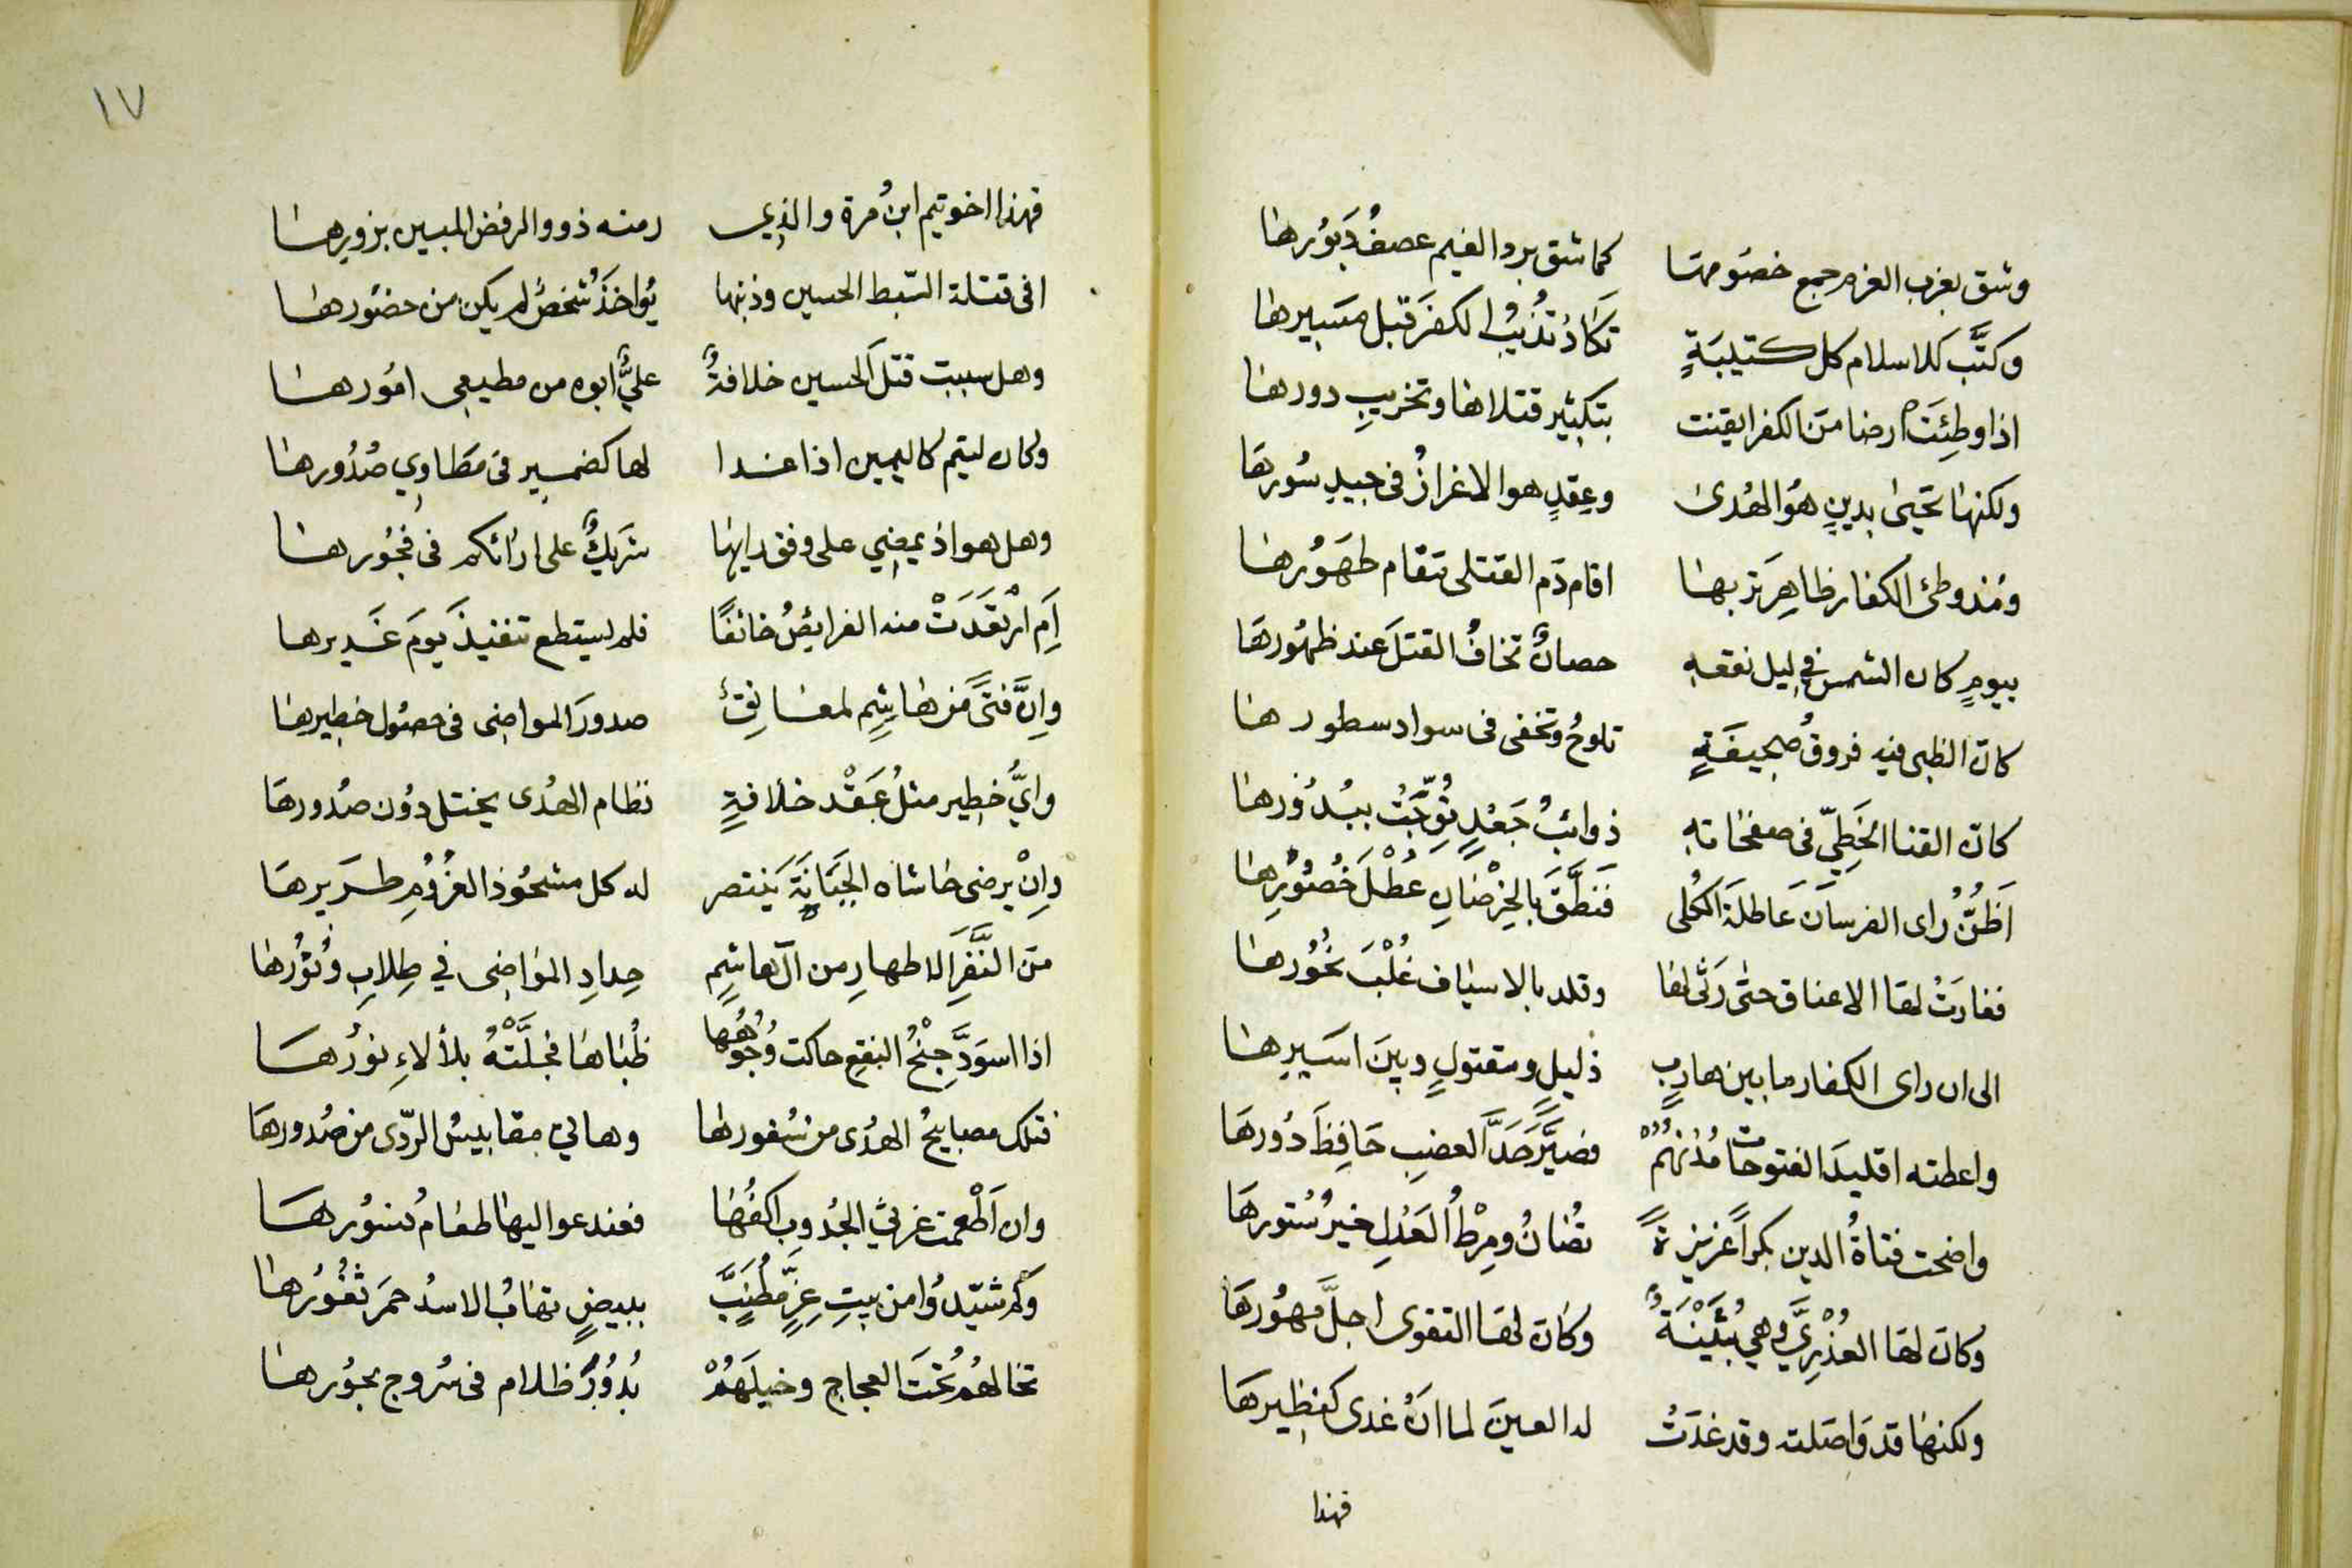 وشق بغرب العزم جمع خصومها كما شق برد الغيم عصفُ دَبوُرها
وكتَّب كلاسلام كل كتيبَةٍ تكادُ تُذيبُ الكفرَ قبل مسَيرها
اذا وطِئَتْ ارضا منَ الكفر ايقنت بتكثير قتلاها وتخريبِ دورها
ولكنها تحيَى بدينٍ هوَ الهُدى وعِقدٍ هو الاغرازُ في جيدِ سُورها
ومُنذ وطئ الكفار ظاهِرَ تربها اقام دَم القتلى مَقام طهَوُرها
بيومٍ كان الشمس في ليل نقعه حصانٌ تخافُ القتلَ عند ظهُورها
كانَ الظبى فيه فروقُ صحيفَةٍ تلوحُ وتخفى في سواد سطورها
كانَ القنا الخَطِيّ في صفحَاته ذوائبُ جَعْدٍ تُوِّجَتْ ببُدُورها
اَظُنُّ راى الفرسانَ عَاطلَةَ الحُلى فَنَطَّقَ بالخِرْصَانِ عُطْلَ خُصُوُرِها
فغارَتْ لهَا الاعناق حتى رَثى لها وقلد بالاسيَاف غُلْبَ نحُوُرها
الى ان راى الكفار ما بين هاربٍ ذليلٍ ومقتولٍ وبينَ اسَيرِها
واعطته اقليدَ الفتوحات مُدْنهُمْ فصيَّرَ حَدَّ العضبِ حَافِظَ دُورهَا
واضحت فتاةُ الدين بكراً عزيزةً تُصَانُ ومِرْطُ العَدْلِ خيرُ سُتورهَا
وكانَ لهَا العُذْرِيَّ وهي بُثَيْنَةٌ وكانَ لهَا التقوى اجلَّ مهوُرهَا
ولكنهَا قد وَاصَلته وقد غدَتْ لدا العينَ لما انَ غدى كنظِيرهَا
فهذا
١٧
فهذا اخو تيم ابنُ مُرة والذي رمته ذوو الرفض المبين بزورِها
افى قتلة السّبط الحسين وذنبها يُواخذُ شخصٌ لم يكن من حضوُرها
وهل سببت قتلَ الحسين خلافةٌ عليٌّ ابوه من مطيعي امُورها
وكان لتيم كاليمين اذا غدا لها كضمير في مَطَاوِي صُدُورها
وهل هو اذ يمضي على وفق رايها شريكٌ على ارائكم في فجُورها
اَم ارْتعَدَتْ منه الفرايصُ خائفًا فلم يستطع تنفيذَ يومَ غَديرها
وانَّ فتًى من هاشِمٍ لمعانِقٌ صدورَ المواضى فى حصُول خطيرها
وايُّ خطِير مثلُ عَقْد خلافةٍ نظام الهدُى يختل دوُن صدُورهَا
وانْ يرضى حاشاه الجَبَانةَ يَنتصر له كل مشحُوذ العزُومِ طريرهَا
منَ النَّفَرِ الاطهارِ من آل هاشِمٍ حِدادِ الموَاضى في طِلابِ وُتوُرِها
اذا اسوَدَّ جنْحُ النقع حاكت وُجُوهُها ظُبَاها فجلَّتْهُ بلألاءِ نورُها
فتلك مصابيحُ الهدُى من سُفورها وهاتي مقابيسُ الرّدى من صُدورهَا
وان اَطْعمت غرثى الجُدوب اكفُهَا فعند عواليهَا طعَامُ نسُورها
وكم شيّدوُا من بيتِ عِزٍّ مُطُنَّبٍ ببيضٍ تهَابُ الاسدُ حمَر ثغُوُرهَا
تخالهُمُ تحُتَ العجاج وخيلَهُمْ بُدوُرُ ظلام فى سُروج بحوُرها